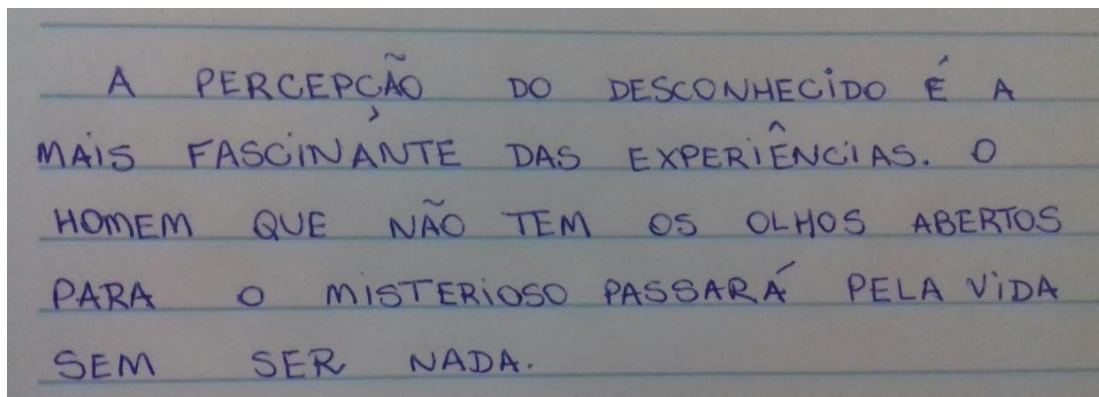 A PERCEPÇÃO DO DESCONHECIDO É A
MAIS FASCINANTE DAS EXPERIÊNCIAS. O
HOMEM QUE NÃO TEM OS OLHOS ABERTOS
PARA O MISTERIOSO PASSARÁ PELA VIDA
SEM SER NADA.